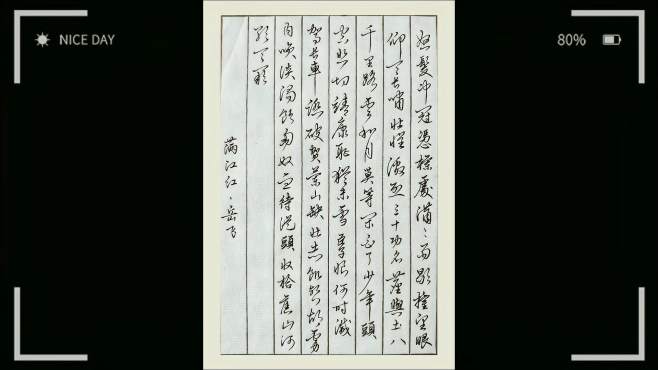 NICE DAY
80%
怒髮冲冠憑欄處瀟瀟雨歇擡望眼
仰天長嘯壯懷激烈三十功名塵與土八
千里路雲和月莫等閒白了少年頭
空悲切靖康恥猶未雪臣子恨何時滅
駕長車踏破賀蘭山缺壯志飢餐胡虜
肉笑談渴飲匈奴血待從頭收拾舊山河
朝天闕
满江红、岳飞